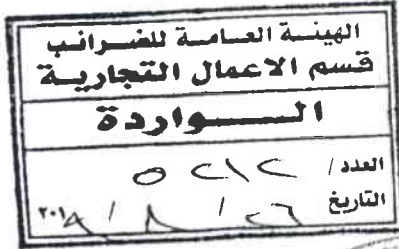 الهيئة العامة للضرائب
قسم الاعمال التجارية
الواردة
العدد / ٥٢١٢
التاريخ ٢٦ / ٨ / ٢٠١